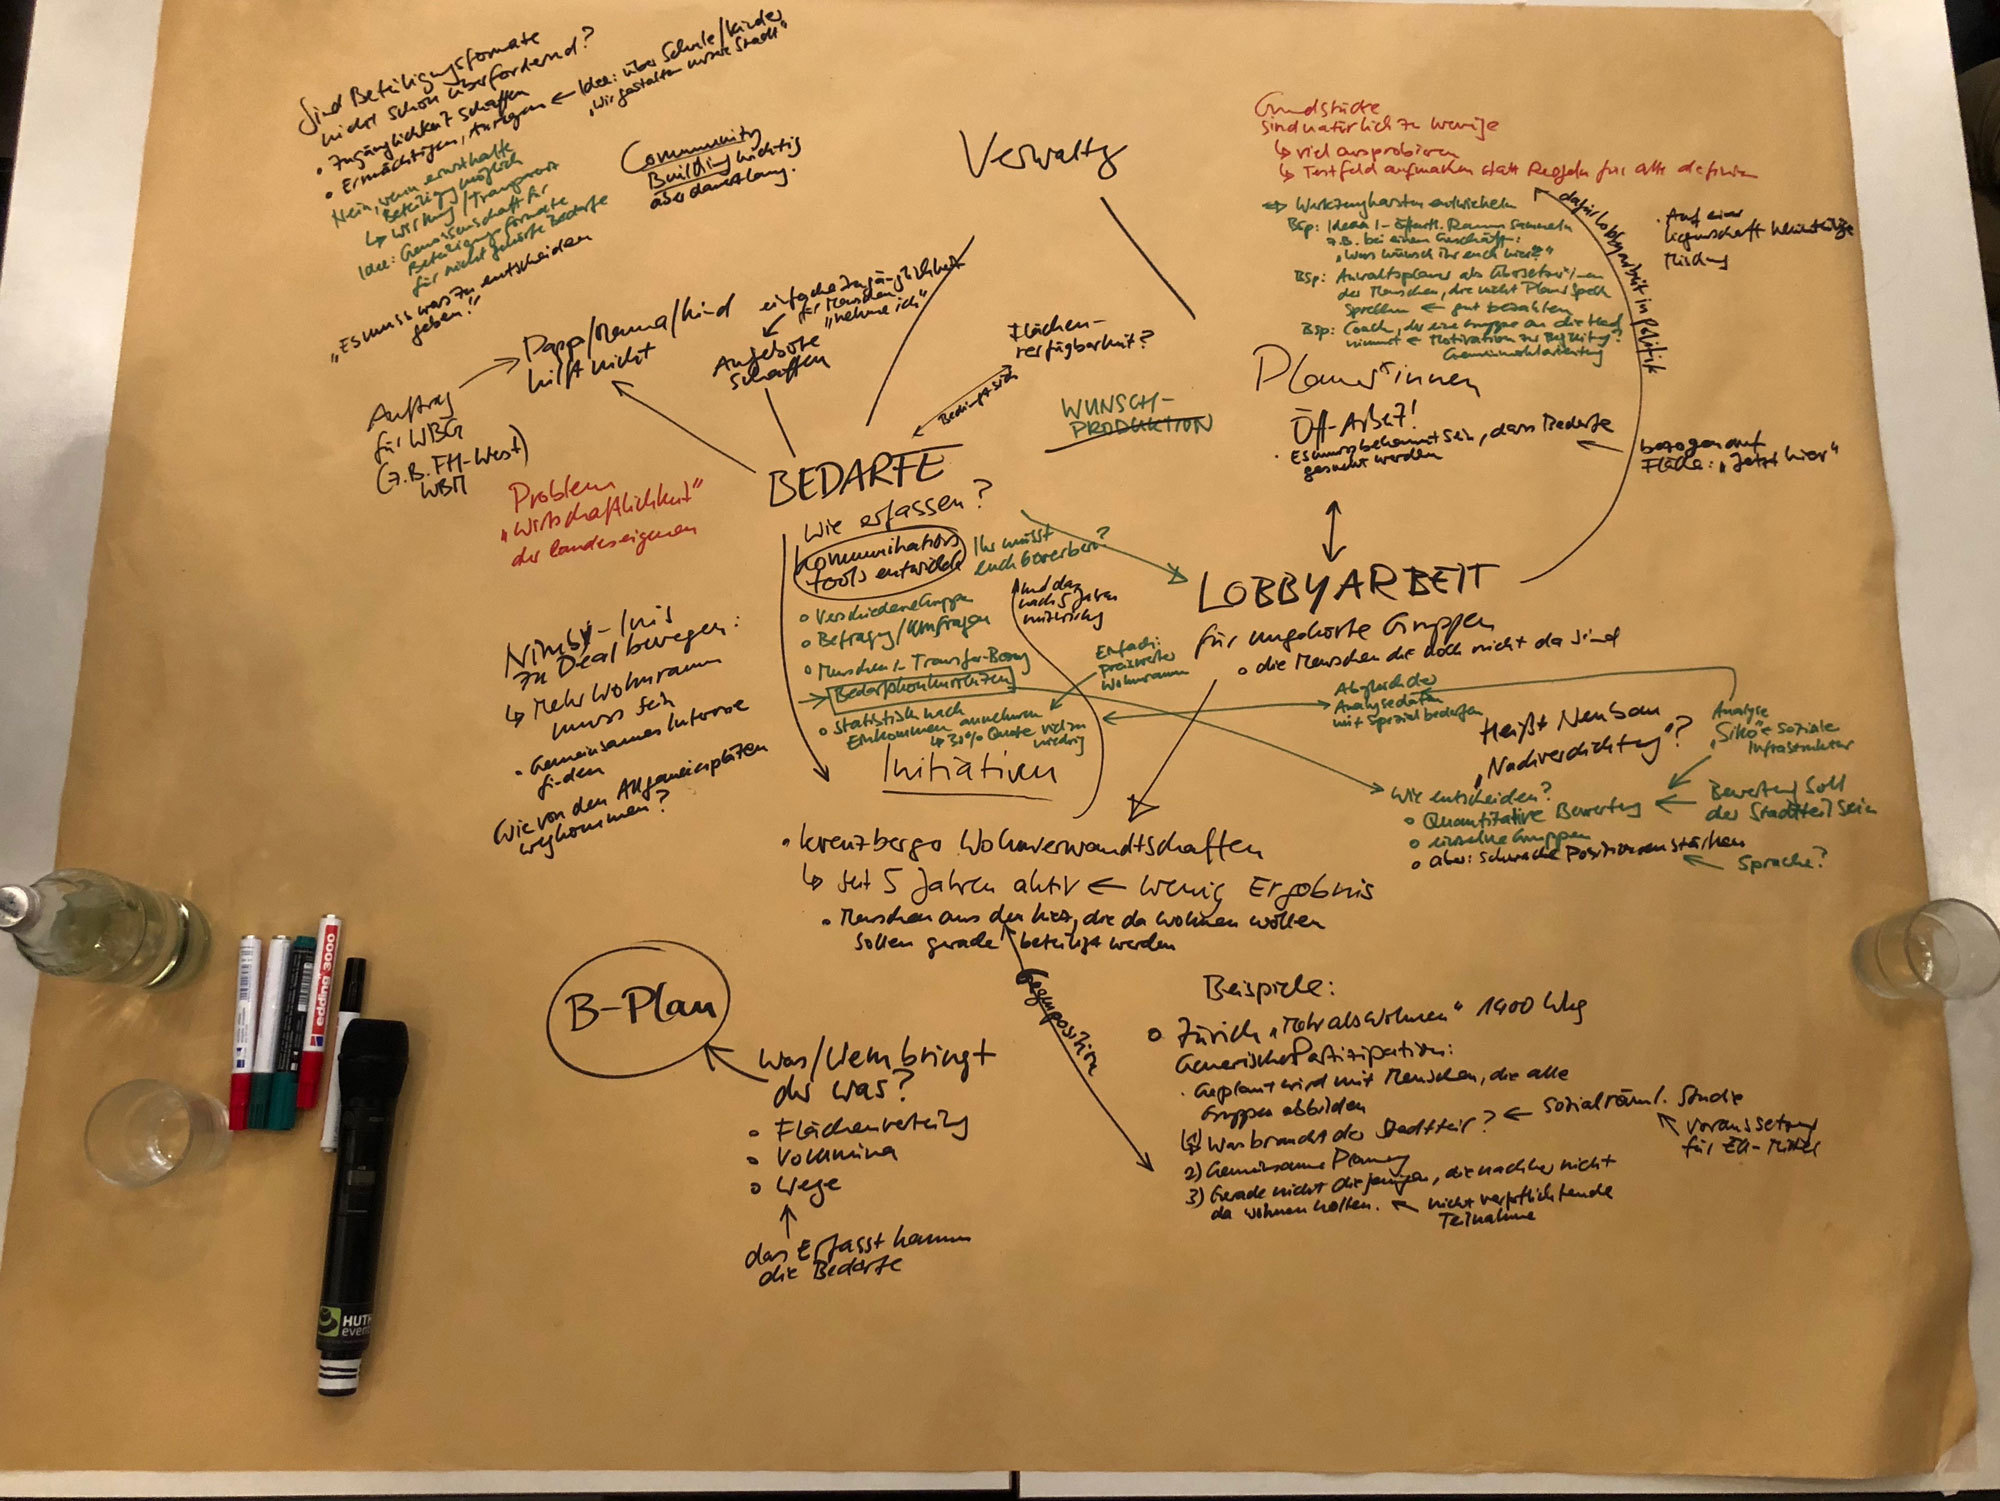 Sind Beteiligungsformate
nicht schon überfordernd?
• Zugänglichkeit schaffen
• Ermächtigen, Anregen ← Idee: über Schule/Kinder
„Wir gestalten unsere Stadt"
Nein, wenn ernsthafte
Beteiligung möglich
↳ Wirkung/Transparenz
Idee: Gemeinschaft für
Beteiligungsformate
für nicht gehörte Bedarfe
„Es muss was zu entscheiden
geben!"
Community
Building wichtig
aber dauert lang.
Verwaltg
Grundstücke
sind natürlich zu wenige
↳ viel ausprobieren
↳ Testfeld aufmachen statt Regeln für alle definieren
⇒ Werkzeugkasten entwickeln
Bsp: Ideen i. öffentl. Raum sammeln
z.B. bei einem Geschäft:
„Was wünsch ihr euch hier?"
Bsp: Anwaltsplaner als Übersetzer*innen
der Menschen, die nicht Planersprech
sprechen ← gut bezahlen
Bsp: Coach, der eine Gruppe an die Hand
nimmt ← Motivation zur Begleitung?
Gemeinwohlorientierung
dafür Lobbyarbeit in Politik
• Auf einer
Liegenschaft
Mischung
Papa/Mama/Kind
hilft nicht
einfache Zugänglichkeit
für Menschen
„nehme ich"
Angebote
schaffen
Flächen-
verfügbarkeit?
Bedingt sich
WUNSCH-
PRODUKTION
Planer*innen
Öff-Arbeit!
• Es muss bekannt sein, dass Bedarfe
gesucht werden
bezogen auf
Fläche: „Jetzt hier"
Auftrag
für WBG
(z.B. FH-West)
WBM
Problem
„Wirtschaftlichkeit"
der landeseigenen
BEDARFE
Wie erfassen?
Kommunikations
tools entwickeln
Ihr müsst
euch bewerben?
o Verschiedene Gruppen
o Befragung/Umfragen
o Menschen i. Transfer-Bezug
→ Bedarfskonkurrenzen
o Statistisch nach
Einkommen annehmen
↳ 30% Quote viel zu
niedrig
und das
nach 5 Jahren
Einfach:
preiswerter
Wohnraum
LOBBYARBEIT
für ungehörte Gruppen
o die Menschen die noch nicht da sind
Abgleich der
Analysedaten
mit Spezialbedarfen
Heißt Neubau
„Nachverdichtung"?
Analyse
„Siko" + Soziale
Infrastruktur
Wie entscheiden?
o Quantitative Bewertung
o einzelne Gruppen
o aber: schwache Positionen stärken
Bewertung soll
der Stadtteil sein
Sprache?
Nimby-Inis
zu Deal bewegen:
↳ Mehr Wohnraum
muss sein
• Gemeinsames Interesse
finden
Wie von den Allgemeinplätzen
wegkommen?
Initiativen
• Kreuzberger Wohnverwandtschaften
↳ seit 5 Jahren aktiv ← wenig Ergebnis
• Menschen aus dem Kiez, die da wohnen wollen
sollen gerade beteiligt werden
Gegenposition
B-Plan
Was/Wem bringt
der was?
• Flächenverteilg
• Volumina
• Wege
das Erfasst kaum
die Bedarfe
Beispiele:
o Zürich „Mehr als Wohnen" 1400 Whg
Generische Partizipation:
• Geplant wird mit Menschen, die alle
Gruppen abbilden
1) Was braucht der Stadtteil? ← sozialräuml. Studie
Voraussetzung
für EU-Mittel
2) Gemeinsame Planung
3) Gerade nicht diejenigen, die nachher nicht
da wohnen wollen. ← nicht verpflichtende
Teilnahme
edding 3000
HUTH
event